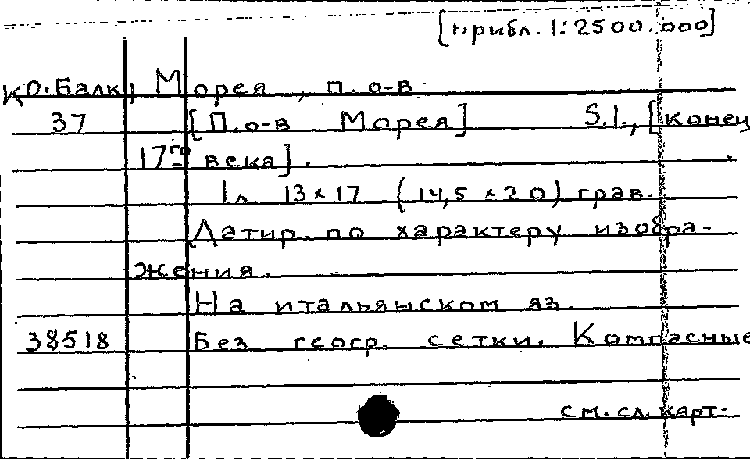 [прибл. 1:2500.000]
КО:Балк, Морея, п. о-в
37 [П.о-в Морея] S.l., [конец
17го века].
1л 13×17 (14,5×20) грав.
Датир. по характеру изобра-
жения.
На итальянском яз.
38518 Без геогр. сетки. Компасные
см. сл. карт.